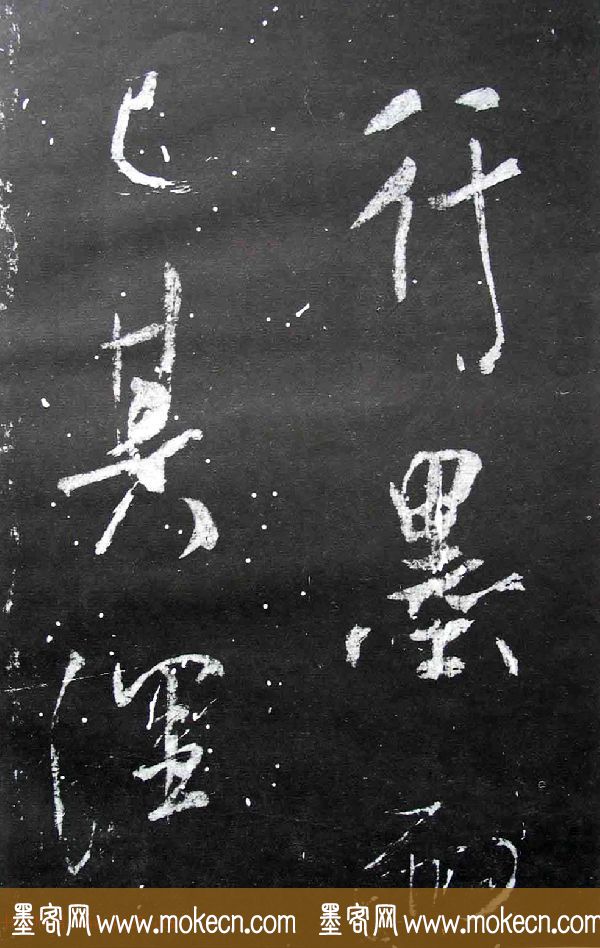 行墨而
已其渾
墨客网 www.mokecn.com 墨客网 www.mokecn.com